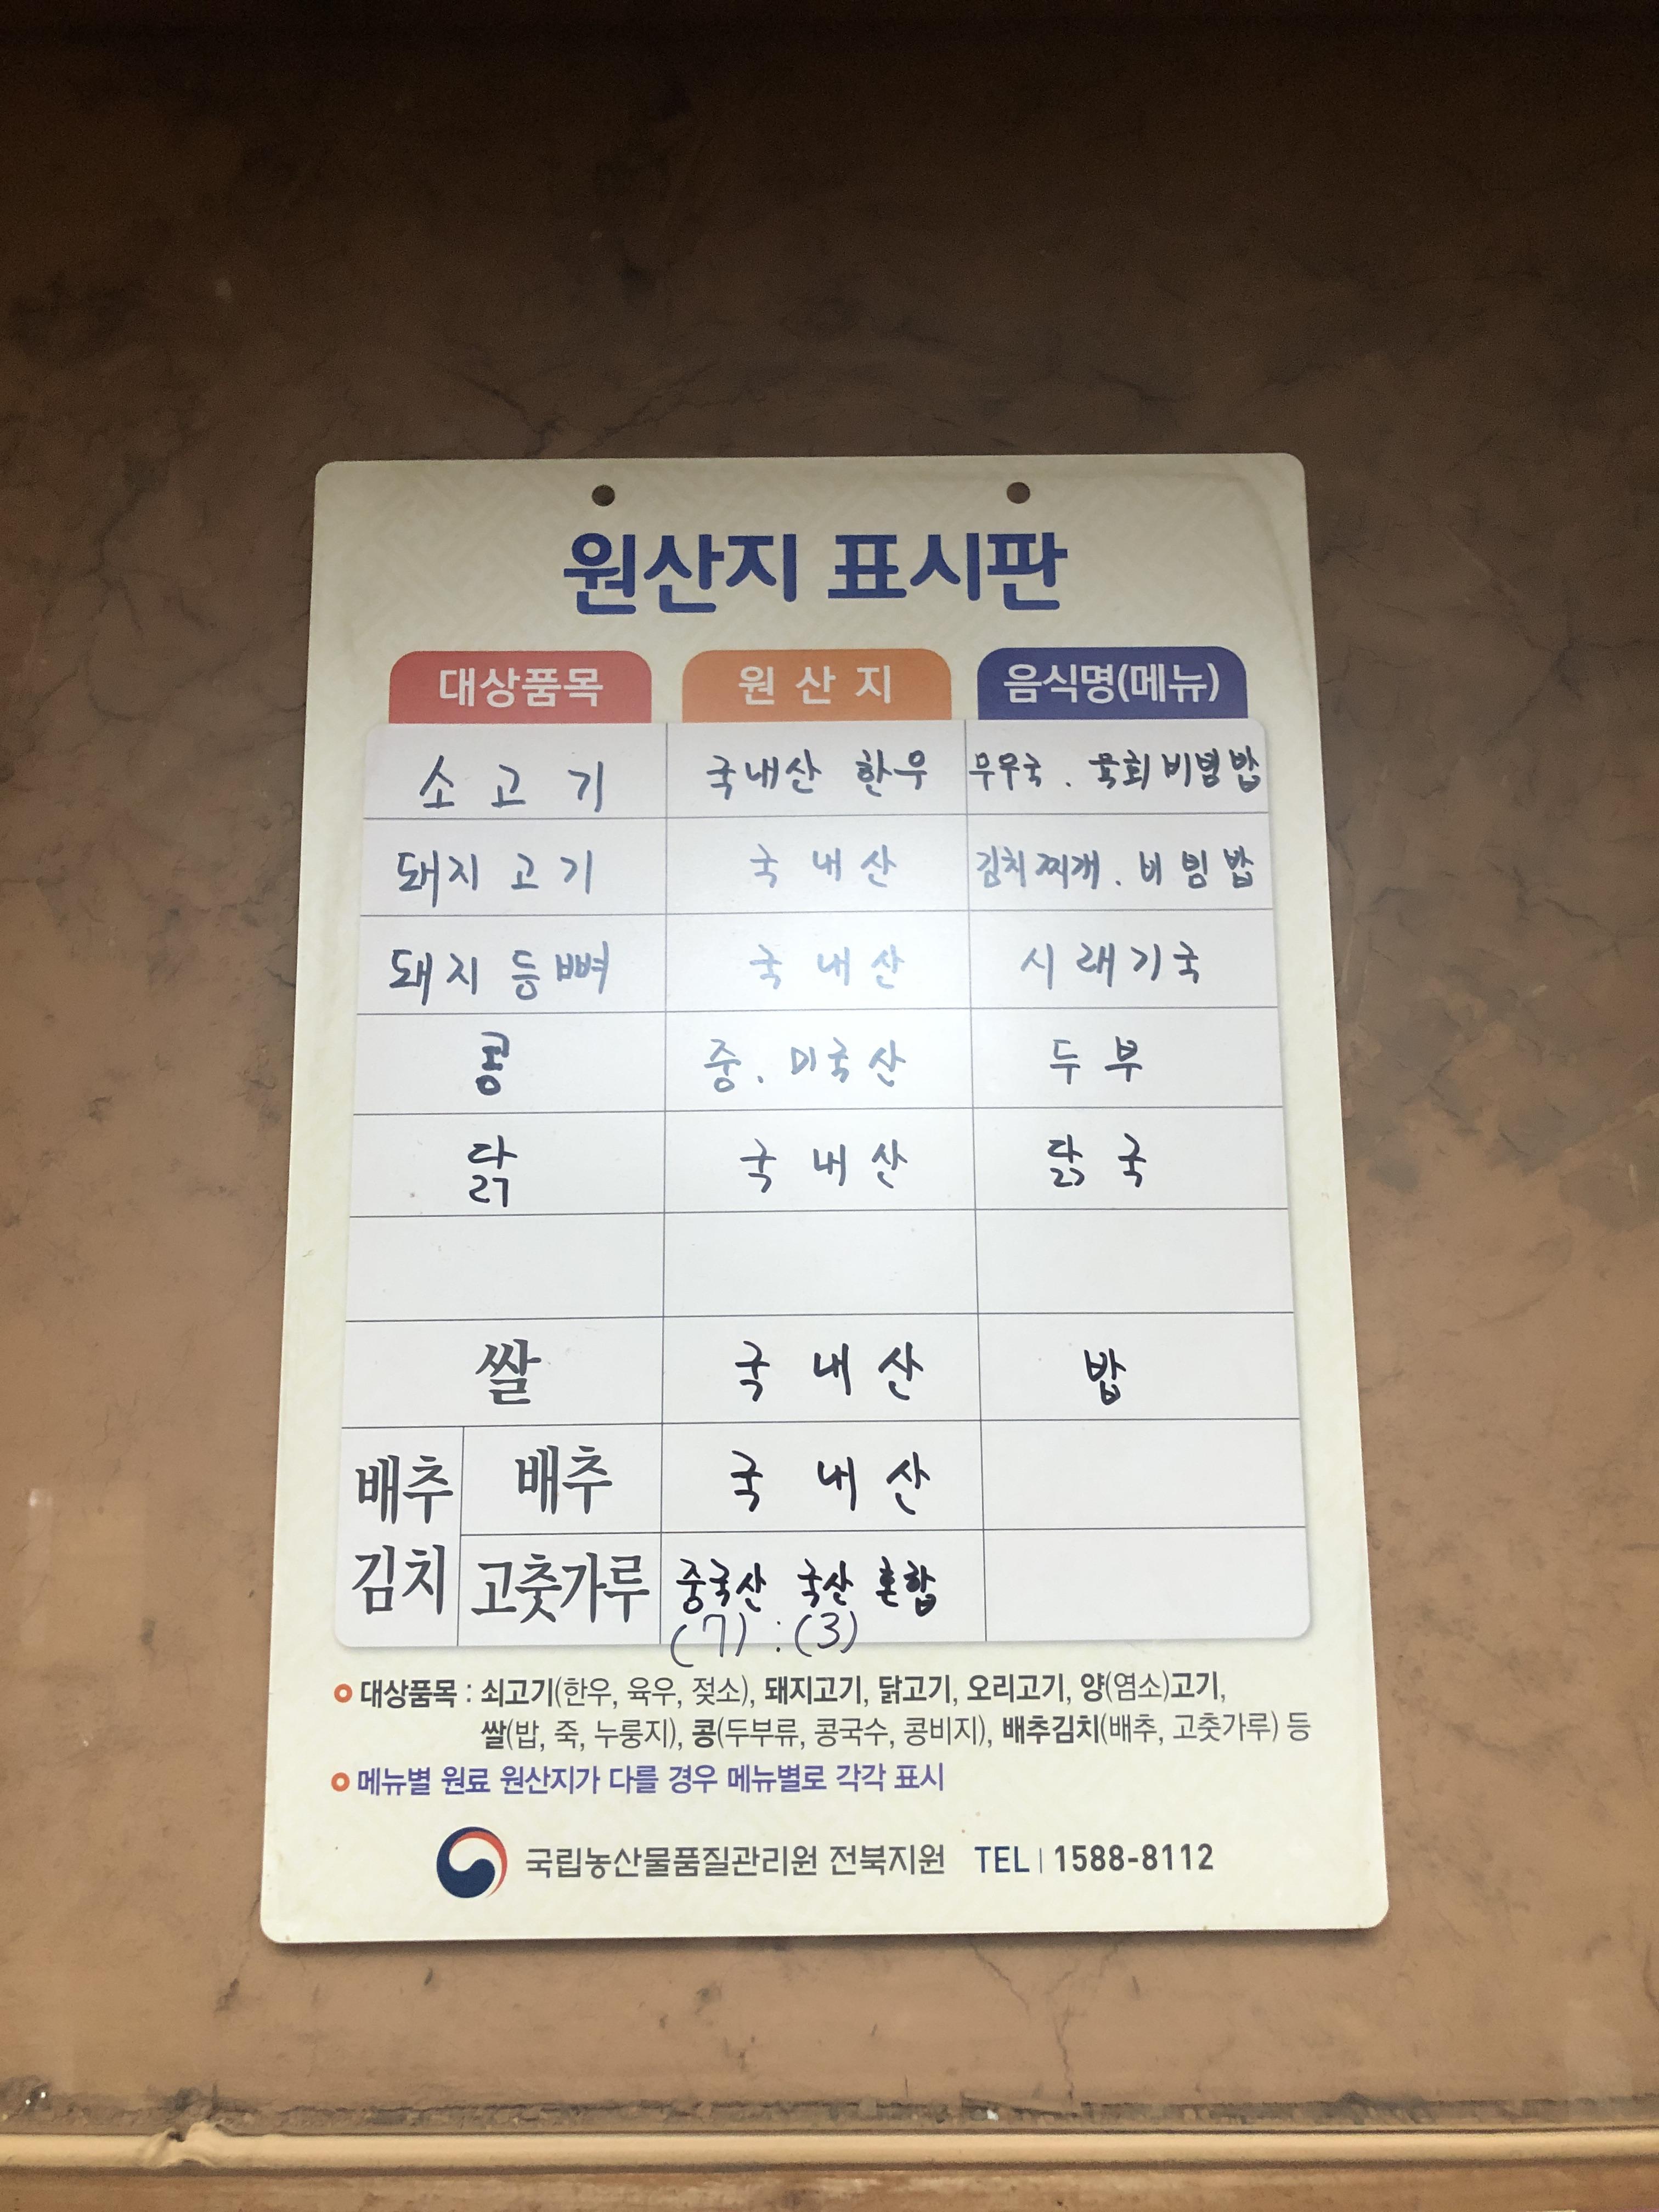 원산지 표시판
대상품목 원산지 음식명(메뉴)
소고기 국내산 한우 무우국. 육회비빔밥
돼지고기 국내산 김치찌개. 비빔밥
돼지등뼈 국내산 시래기국
콩 중. 미국산 두부
닭 국내산 닭국
쌀 국내산 밥
배추 배추 국내산
김치 고춧가루 중국산 국산 혼합
(7) : (3)
대상품목 : 쇠고기(한우, 육우, 젖소), 돼지고기, 닭고기, 오리고기, 양(염소)고기,
쌀(밥, 죽, 누룽지), 콩(두부류, 콩국수, 콩비지), 배추김치(배추, 고춧가루) 등
메뉴별 원료 원산지가 다를 경우 메뉴별로 각각 표시
국립농산물품질관리원 전북지원 TEL | 1588-8112